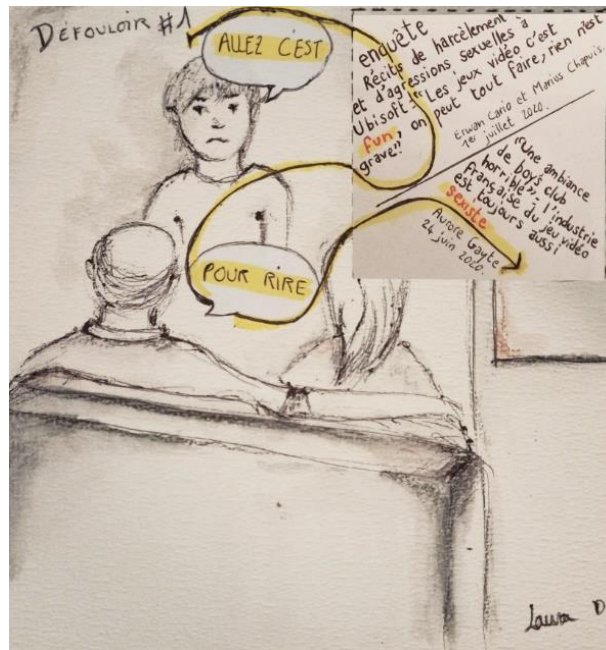 DÉFOULOIR #1
ALLEZ C'EST
POUR RIRE
enquête
Récits de harcèlement
et d'agressions sexuelles à
Ubisoft: "Les jeux vidéo c'est
fun, on peut tout faire, rien n'est
grave."
Erwan Cario et Marius Chapuis.
1er juillet 2020.
"Une ambiance
de boys club
horrible": l'industrie
française du jeu vidéo
est toujours aussi
sexiste
Aurore Gayte
24 juin 2020.
Laura D